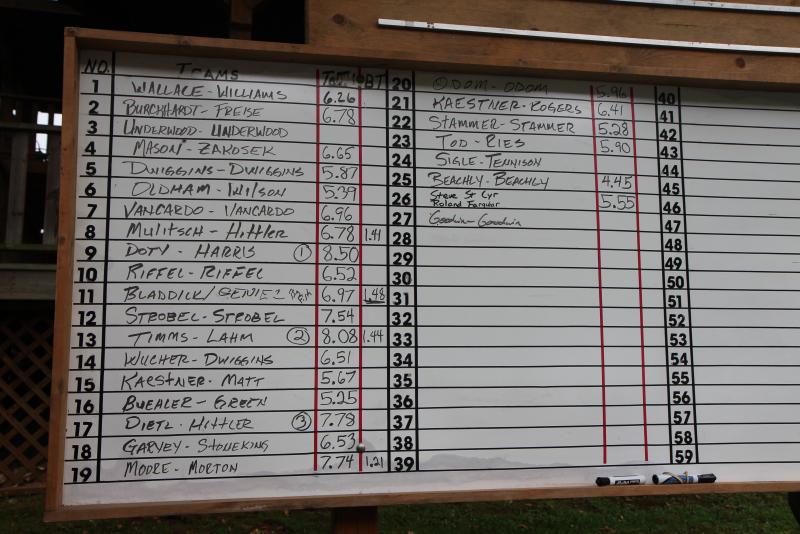 NO. TEAMS TOT BT
1 WALLACE - WILLIAMS 6.26
2 BURCHARDT - FREISE 6.78
3 UNDERWOOD - UNDERWOOD
4 MASON - ZAKOSEK 6.65
5 DWIGGINS - DWIGGINS 5.87
6 OLDHAM - WILSON 5.39
7 VANCARDO - VANCARDO 6.96
8 MULITSCH - HITTLER 6.78 1.41
9 DOTY - HARRIS 1 8.50
10 RIFFEL - RIFFEL 6.52
11 BLADDICK / 6.97 1.48
12 STROBEL - STROBEL 7.54
13 TIMMS - LAHM 2 8.08 1.44
14 WUCHER - DWIGGINS 6.51
15 KAESTNER - MATT 5.67
16 BUEHLER - GREEN 5.25
17 DIETL - HITTLER 3 7.78
18 GARVEY - STONEKING 6.53
19 MOORE - MORTON 7.74 1.21
20 ODOM - ODOM 5.96
21 KAESTNER - ROGERS 6.41
22 STAMMER - STAMMER 5.28
23 TOD - RIES 5.90
24 SIGLE - TENNISON
25 BEACHLY - BEACHLY 4.45
26 Steve St Cyr
Roland Farquar 5.55
27 Goodwin - Goodwin
28
29
30
31
32
33
34
35
36
37
38
39
40
41
42
43
44
45
46
47
48
49
50
51
52
53
54
55
56
57
58
59